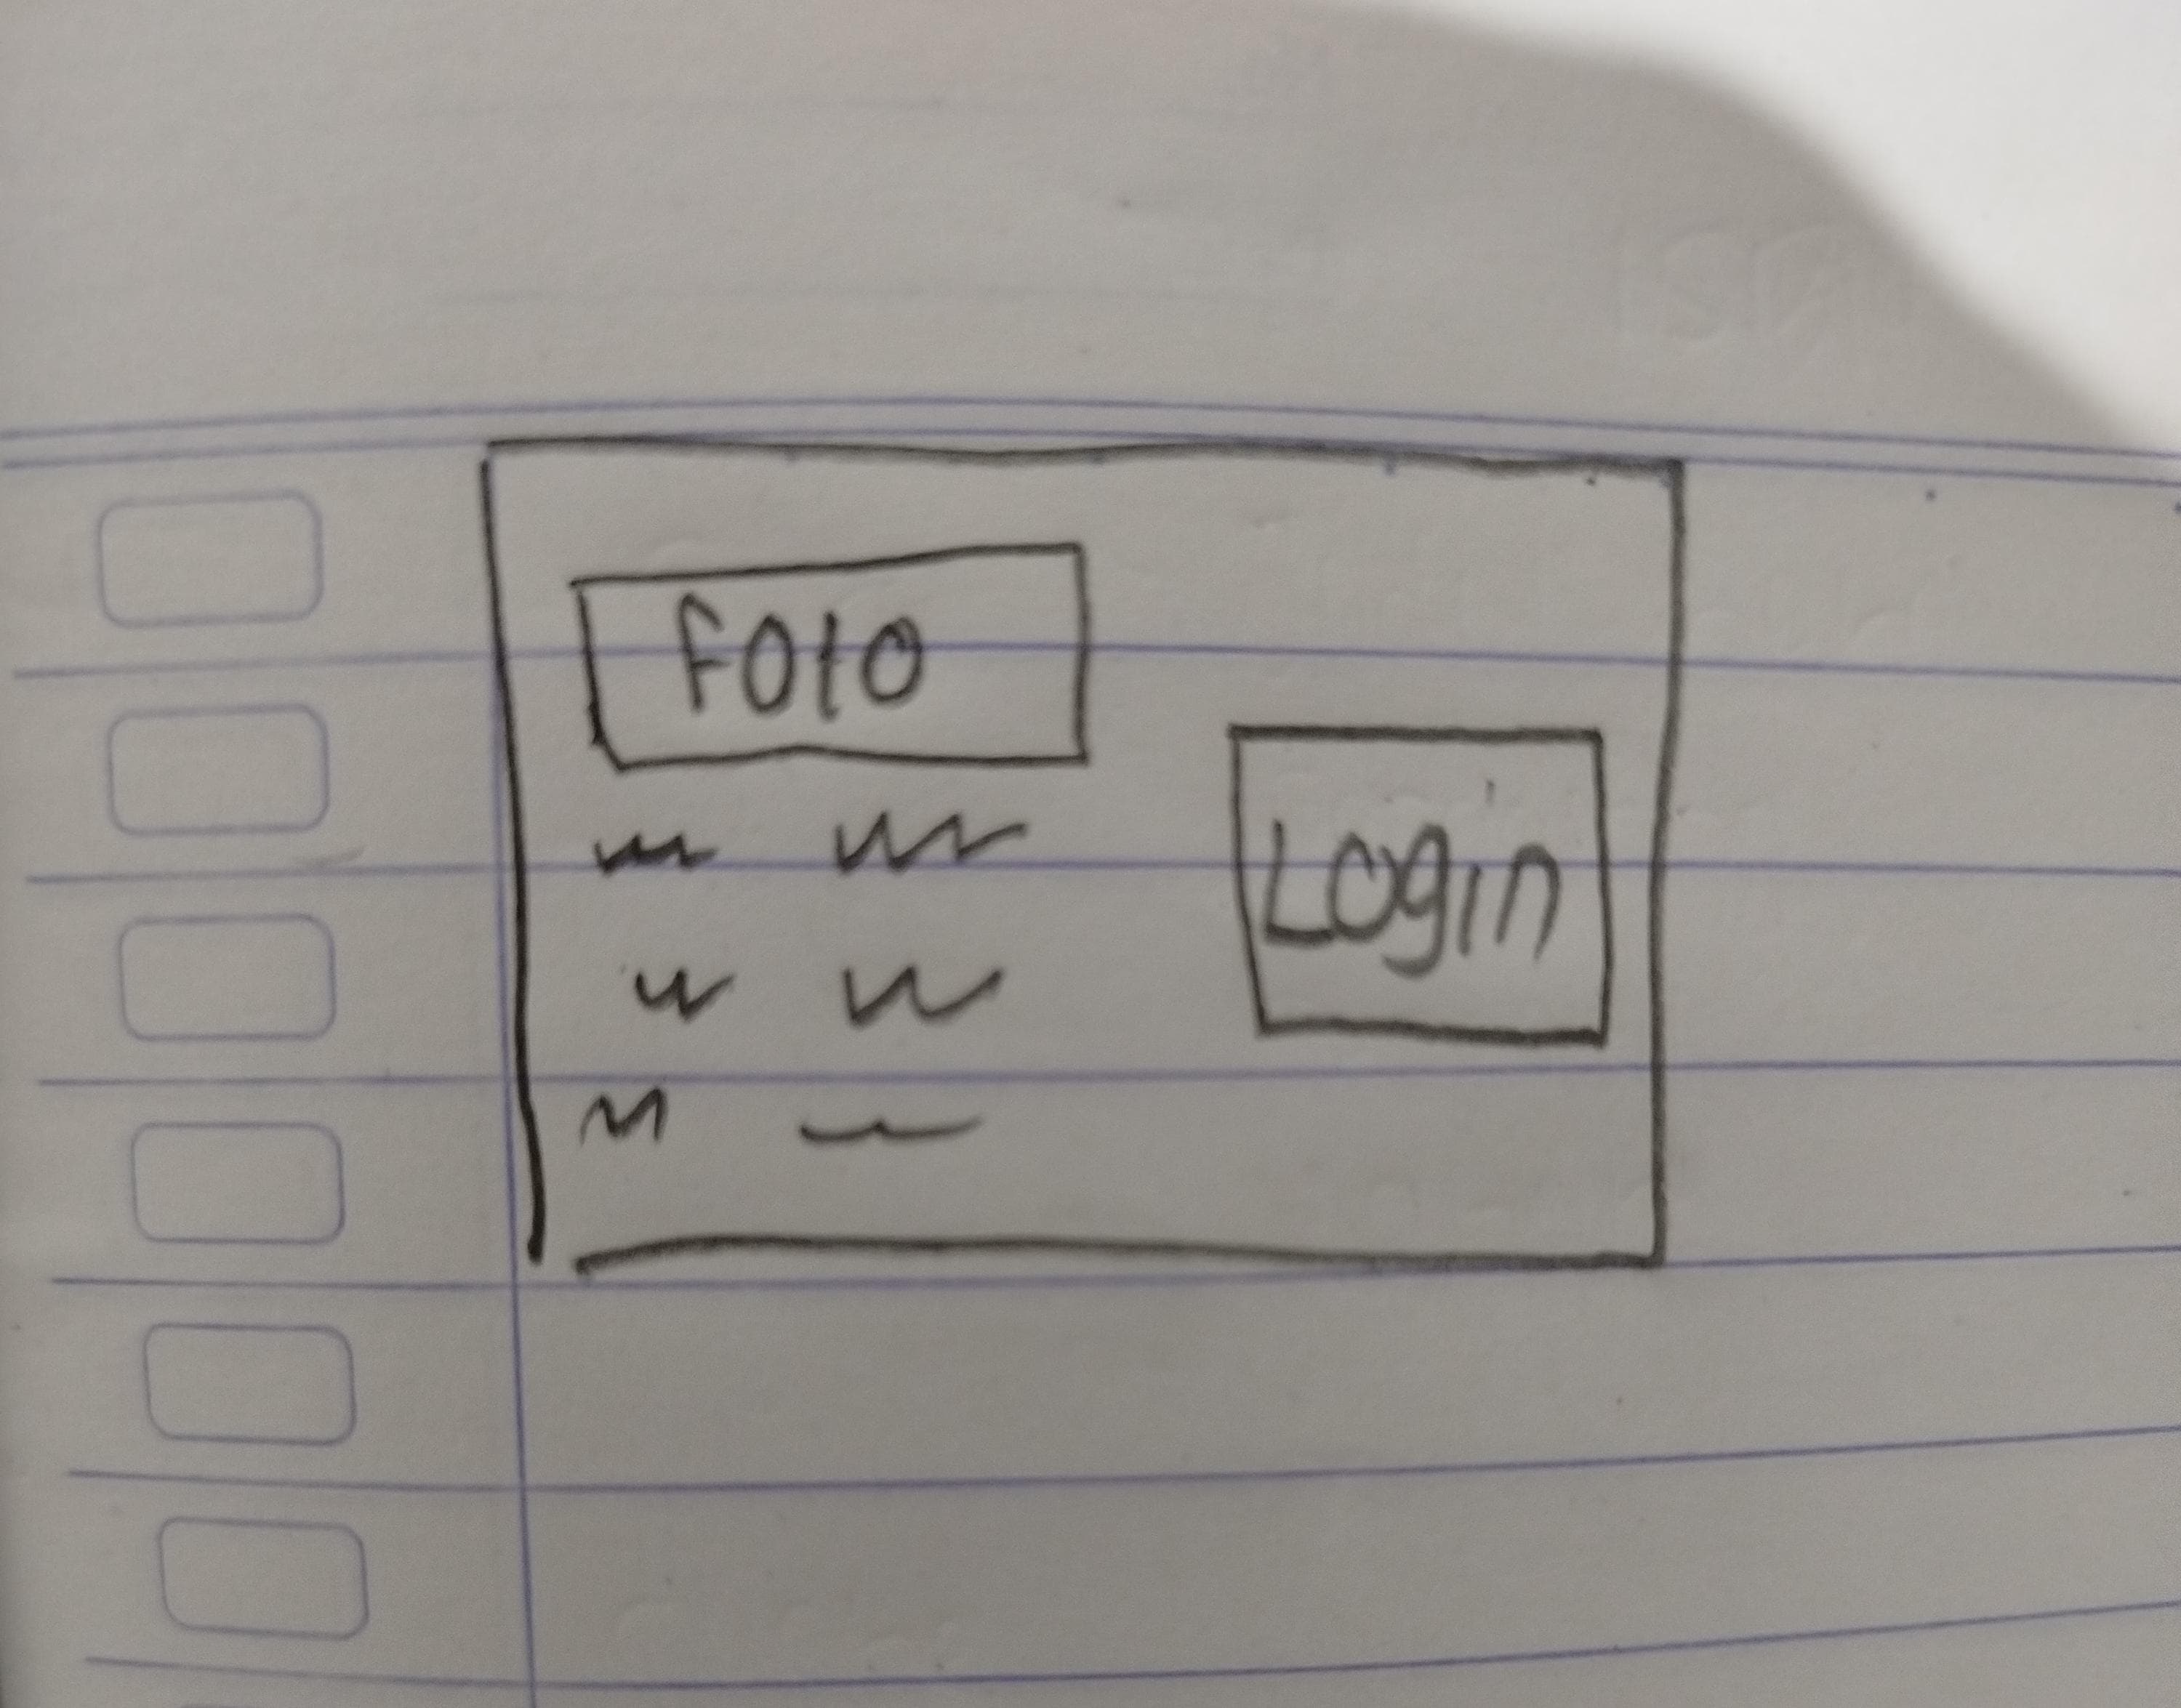 Foto
Login